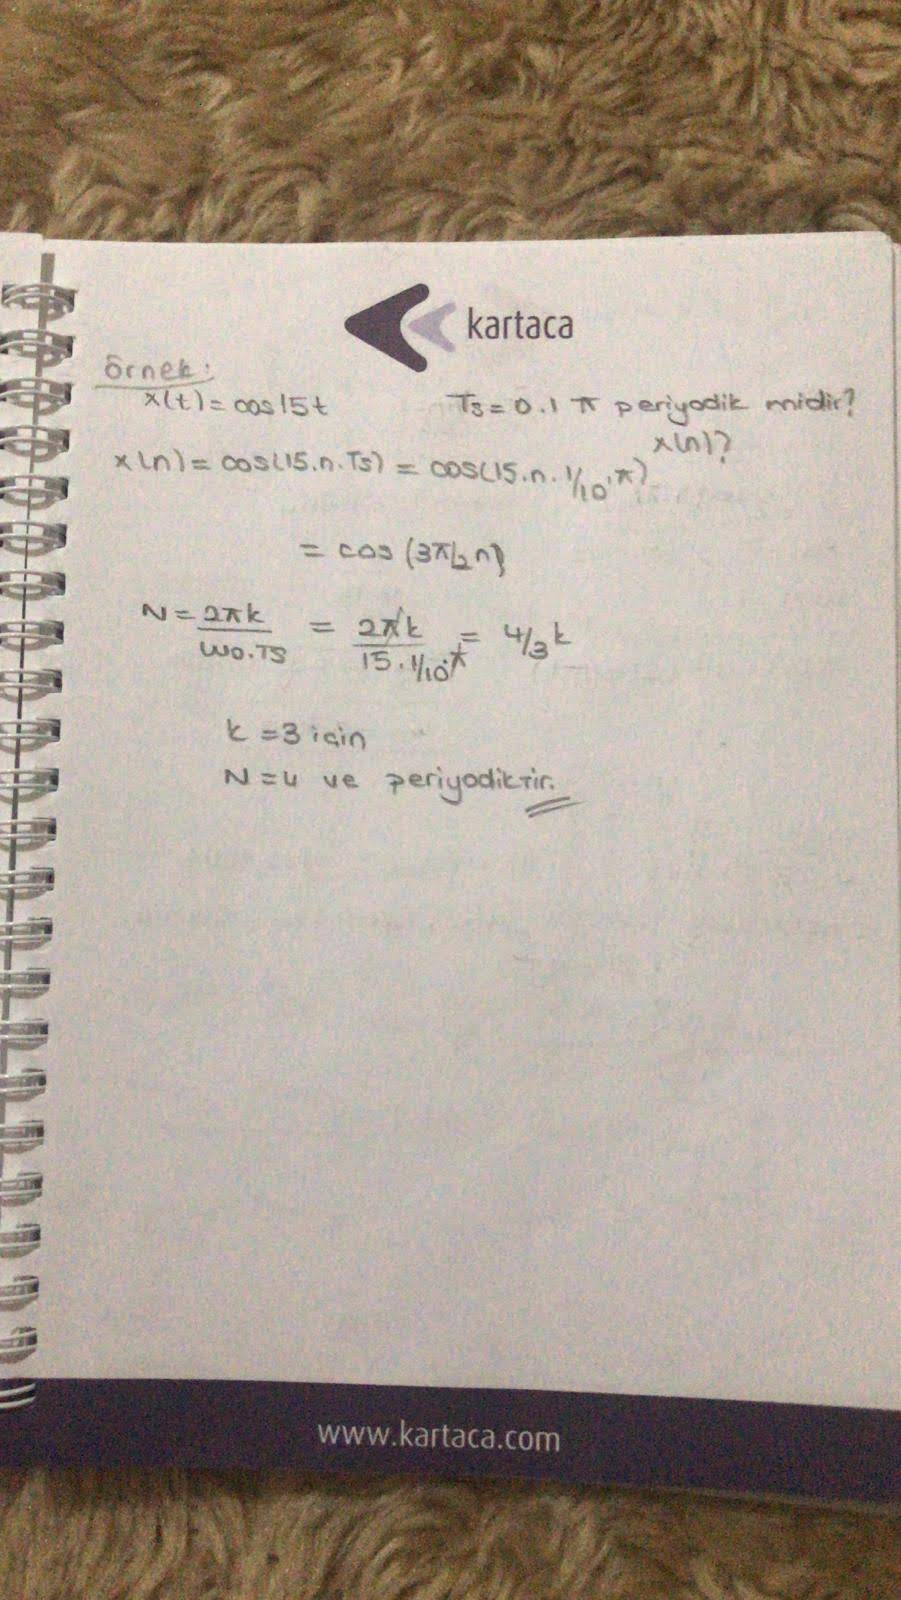 kartaca
örnek:
x(t) = cos15t Ts = 0.1 π periyodik midir?
x(n)?
x(n) = cos(15.n.Ts) = cos(15.n.1/10.π)
= cos(3π/2n)
N = 2πk/w0.Ts = 2πk/15.1/10.π = 4/3k
k = 3 için
N = 4 ve periyodiktir.
www.kartaca.com